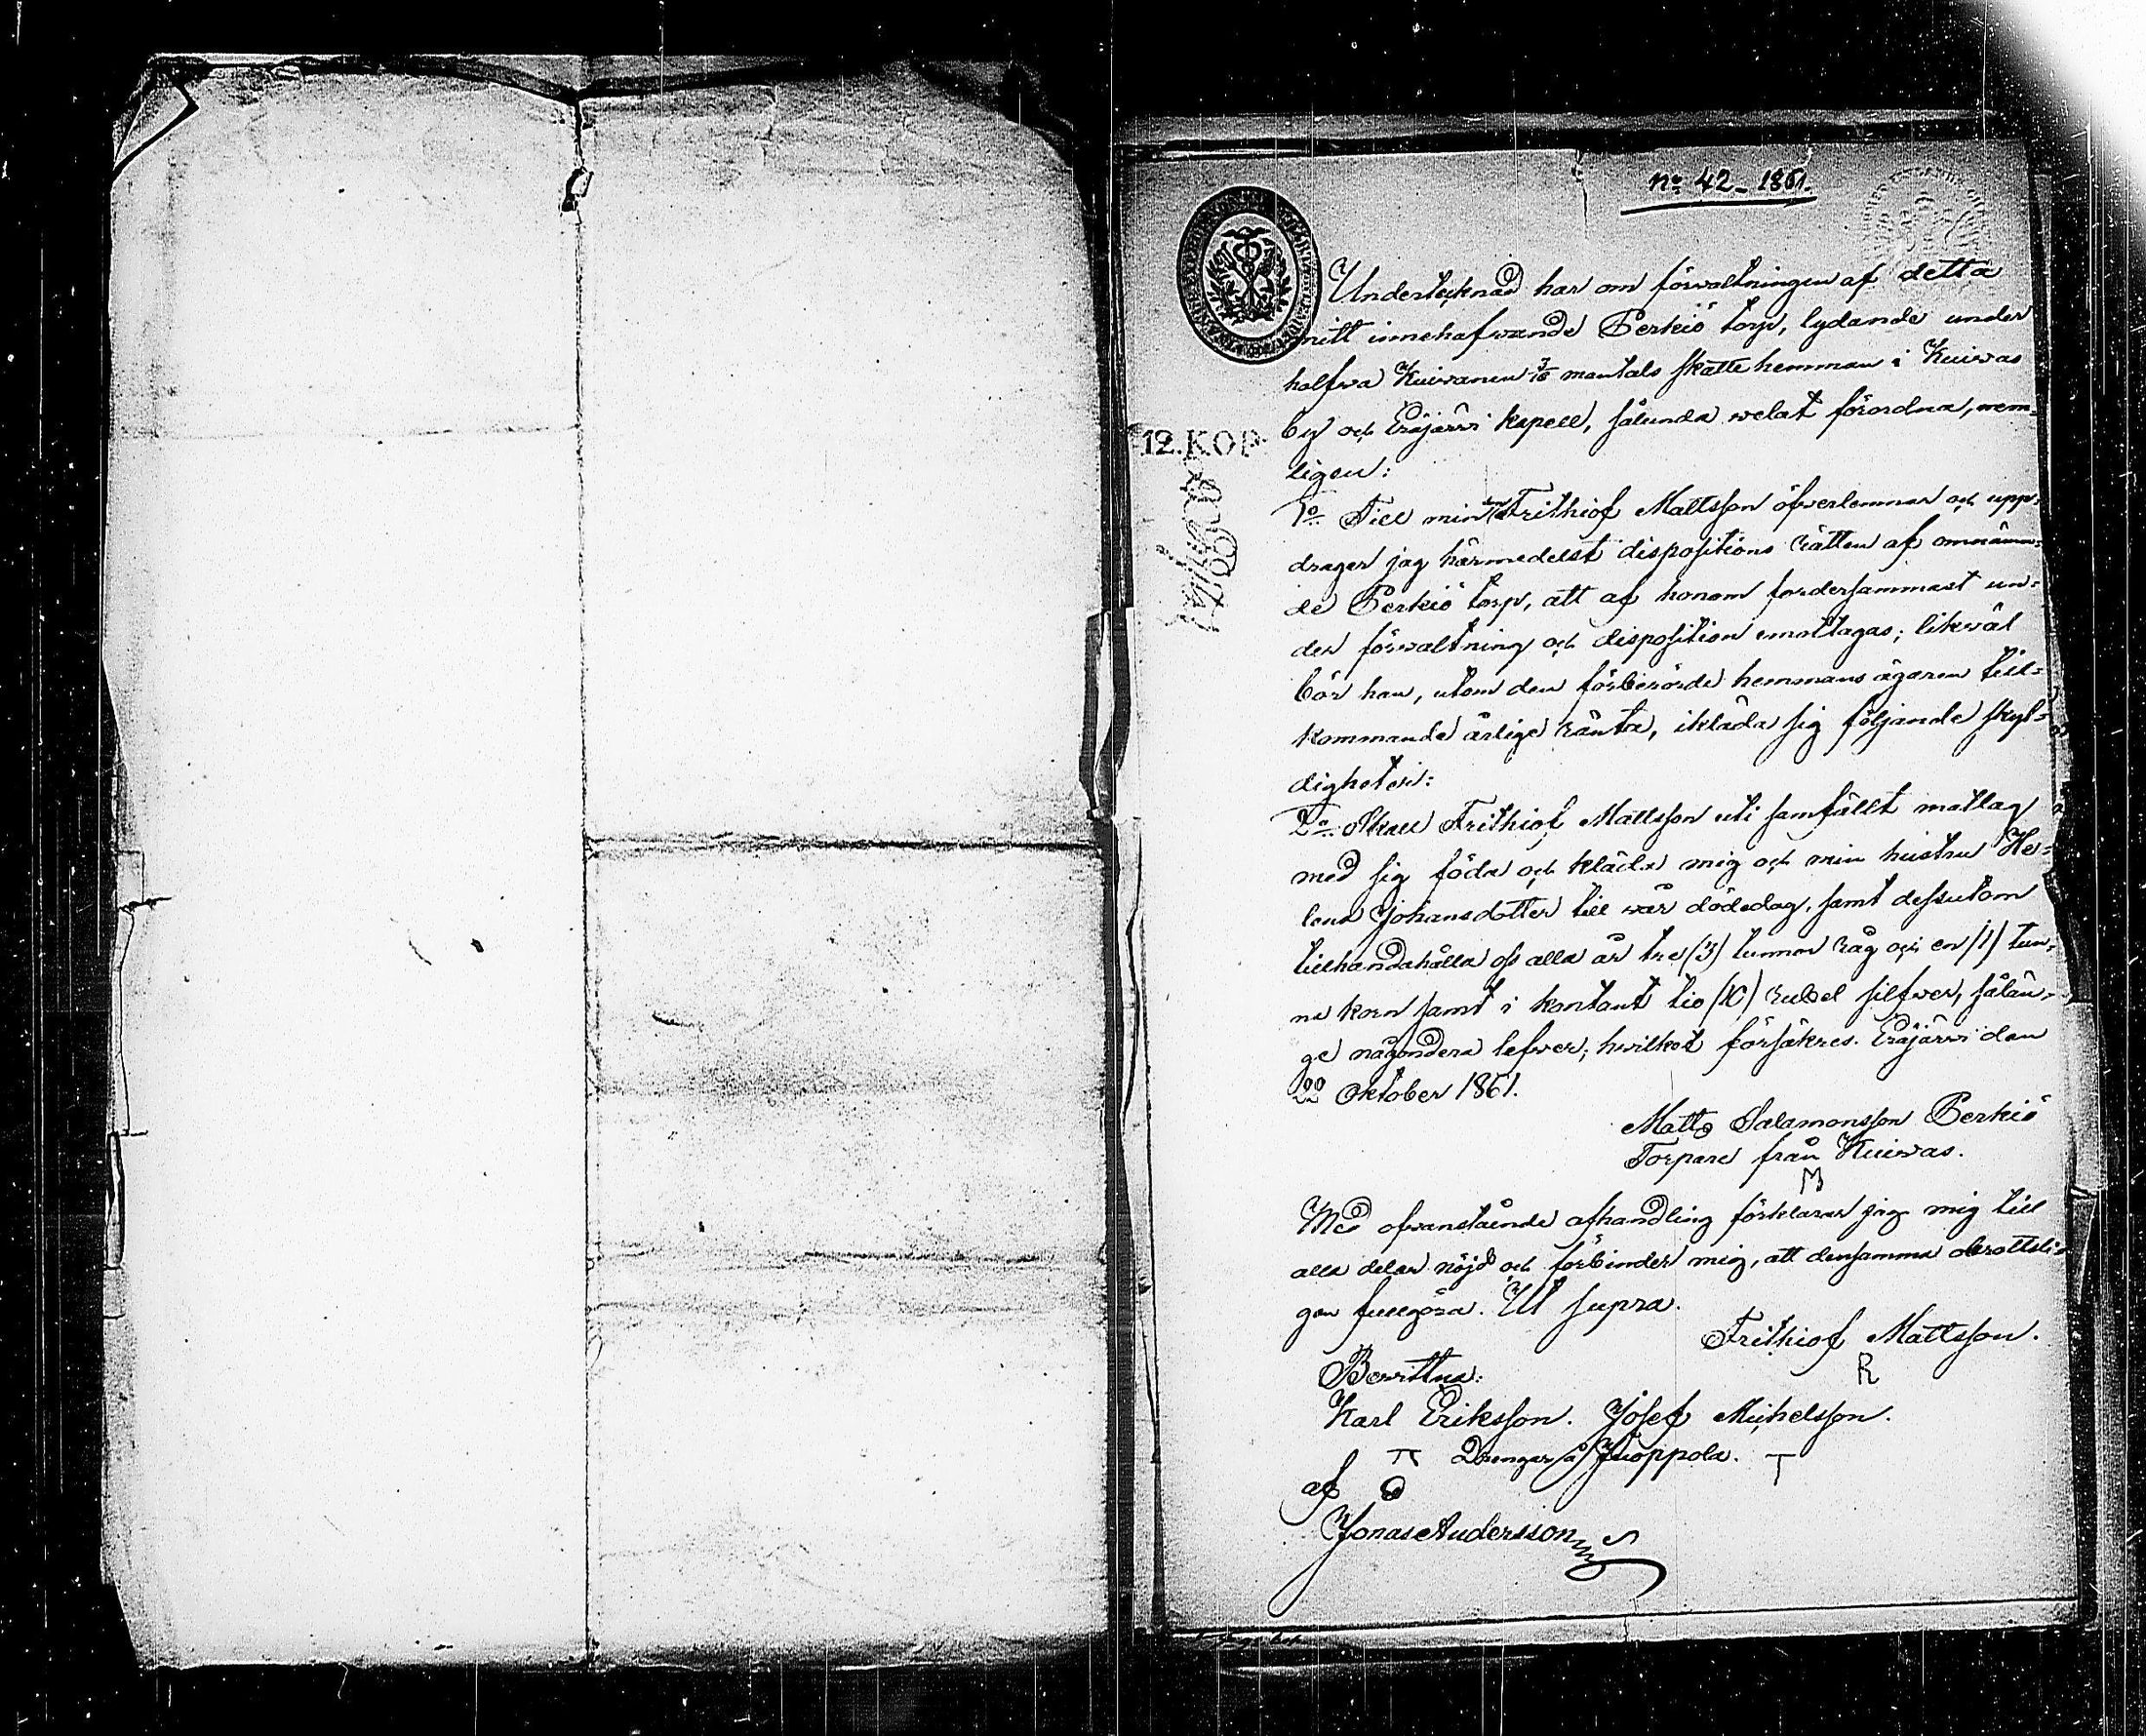 no 42 - 1861.
Undertecknad har om förvaltningen af detta
mitt innehafwande Perkiö torp, lydande under
halfwa Kuiwanen 3/16 mantals skatte hemman i Kuiwas
by och Eräjärvi kapell, sålunda welat förordna, nem=
12. KOP.
ligen:
1o Till min son Frithiof Mattsson öfwerlemnar och upp=
drager jag härmedelst dispositions rätten af omnämn=
de Perkiö torp, att af honom fordersammast un=
der förwaltning och disposition emottagas; likwäl
bör han, utom den förberörde hemmans ägaren till=
kommande årliga ränta, ikläda sig följande skyl=
digheter:
2o Skall Frithiof Mattsson uti samfällt matlag
med sig föda och kläda mig och min hustru He=
lena Johansdotter till wår dödedag, samt dessutom
tillhandahålla oss alla år tre (3) tunnor råg och en (1) tun=
na korn samt i kontant tio (10) rubel silfwer, sålän=
ge någondera lefwer; hwilket försäkras. Eräjärvi den
22 Oktober 1861.
Matts Salamonsson Perkiö
Torpare från Kuiwas.
M
Med ofwanstående afhandling förklarar jag mig till
alla delar nöjd och förbinder mig, att densamma obrottsli=
gen fullgöra. Ut supra.
Frithiof Mattsson.
R
Bewittna:
Karl Eriksson. Josef Michelsson.
Drengar å Juoppola. T
af
Jonas Andersson